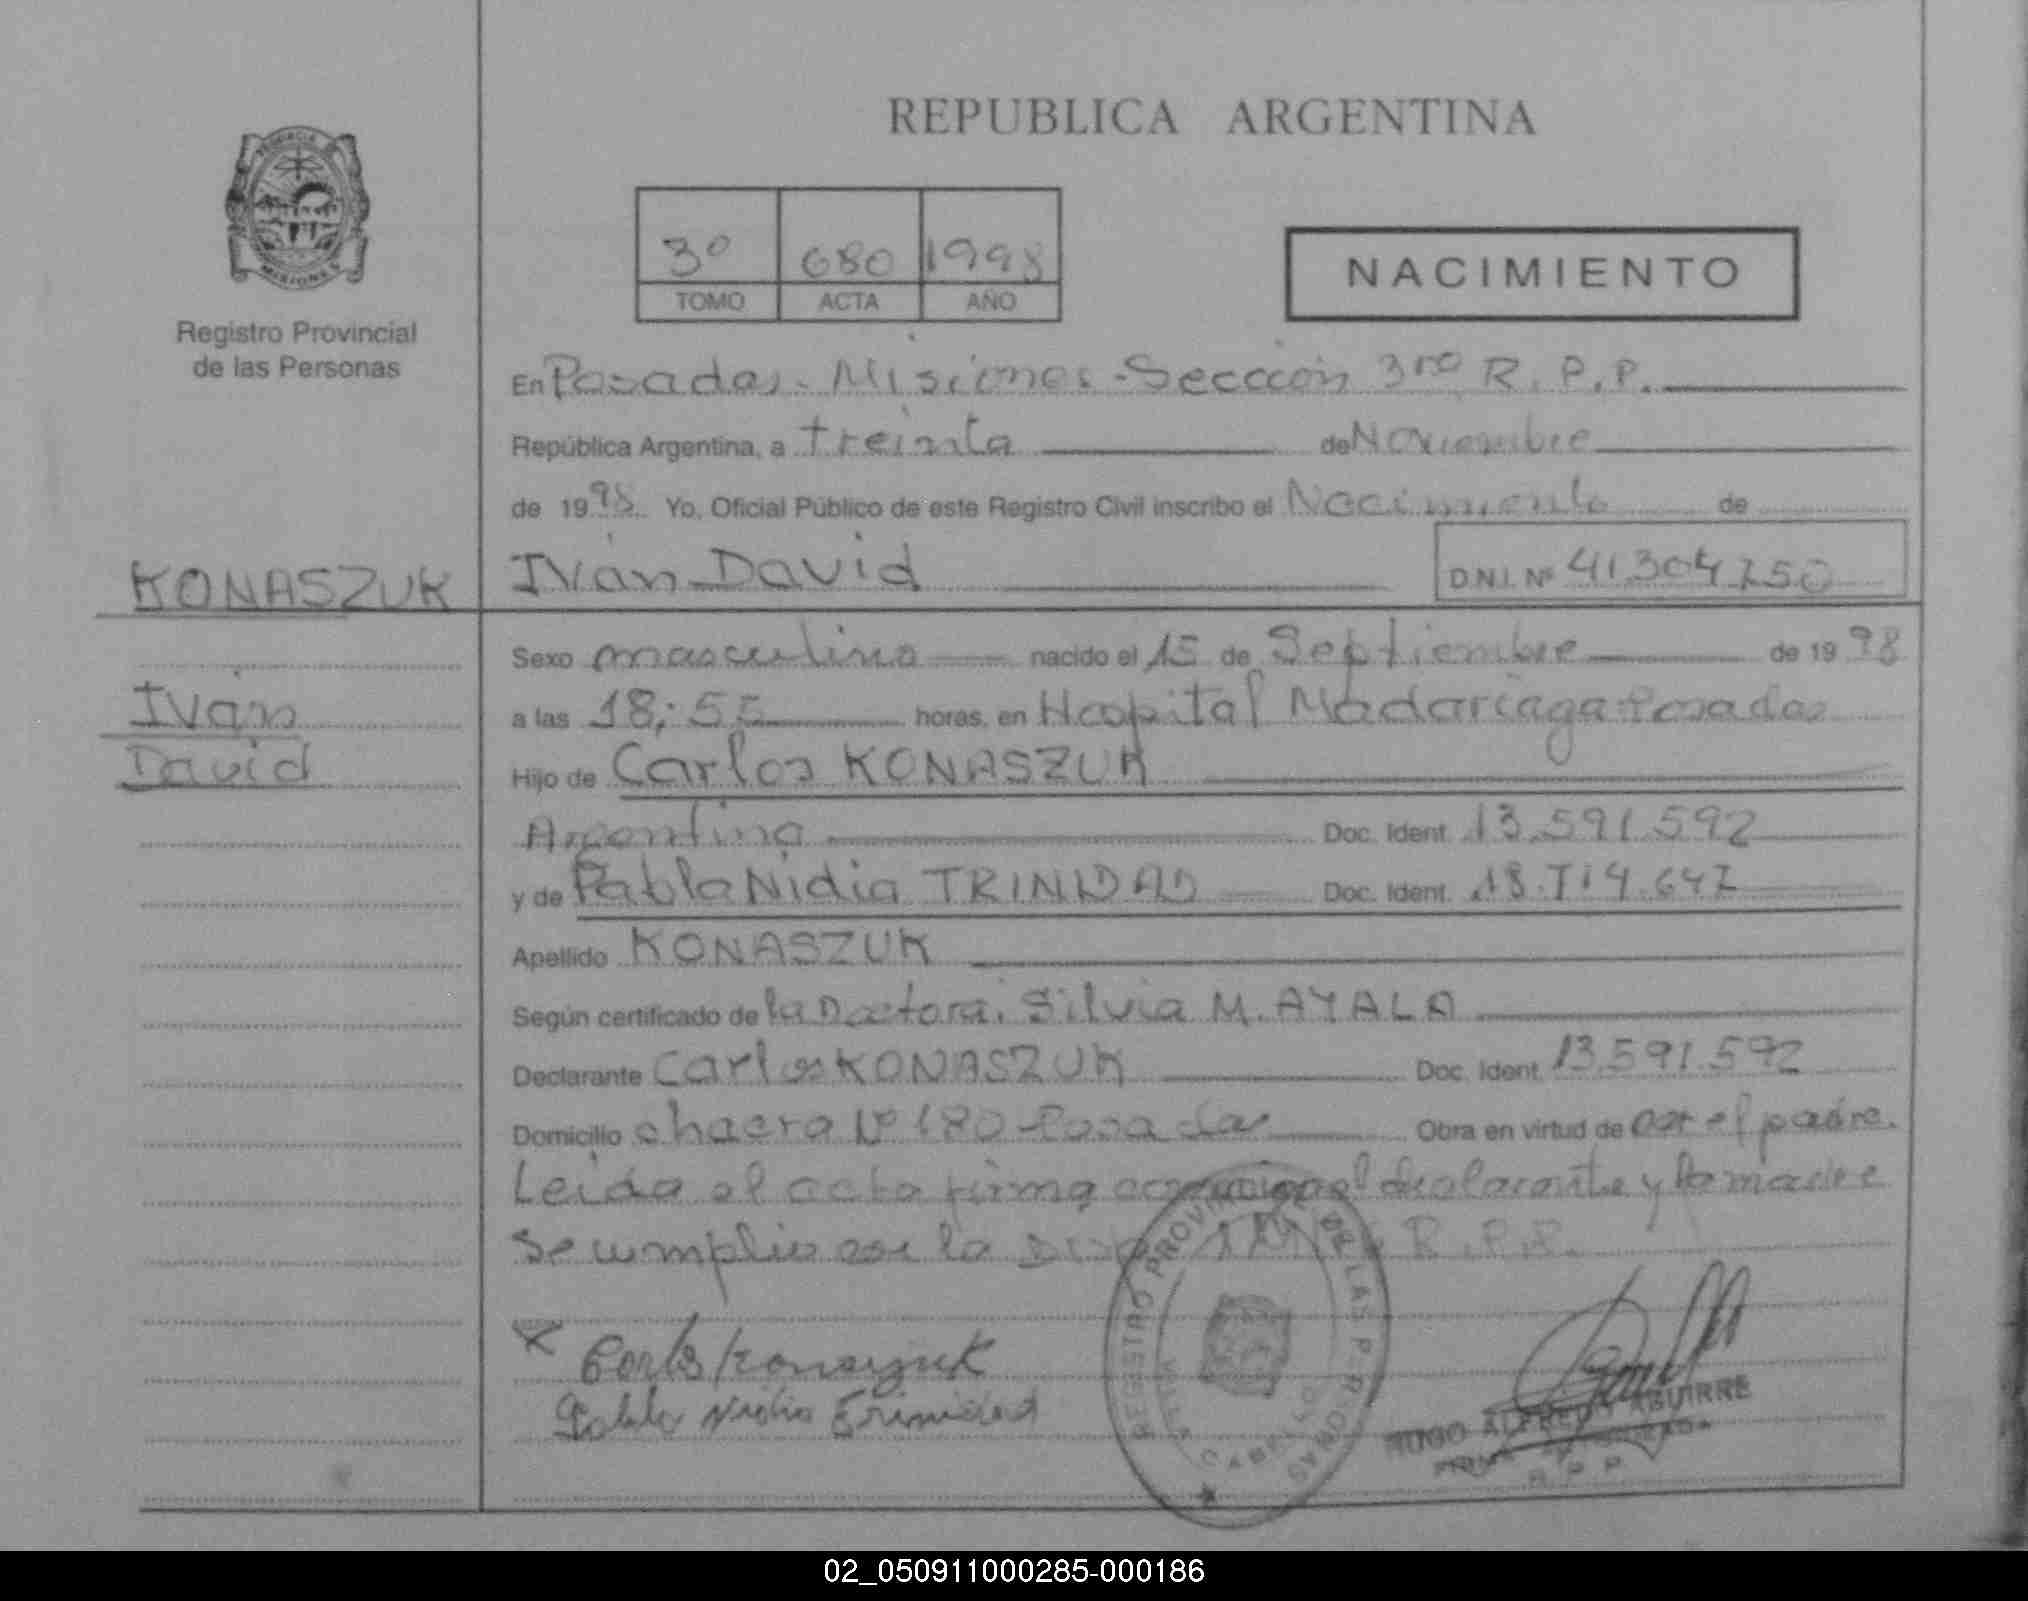 REPUBLICA ARGENTINA
PROVINCIA
MISIONES
Registro Provincial
de las Personas
3º 680 1998
TOMO ACTA AÑO
NACIMIENTO
En Posadas - Misiones - Sección 3ra R. P. P.
República Argentina, a treinta de Noviembre
de 1998 Yo, Oficial Público de este Registro Civil inscribo el Nacimiento de
KONASZUK
Iván David
D.N.I. Nº 41.304.750
Iván
David
Sexo masculino nacido el 15 de Septiembre de 1998
a las 18:55 horas, en Hospital Madariaga Posadas
Hijo de Carlos KONASZUK
Argentino Doc. Ident. 13.591.592
y de Pabla Nidia TRINIDAD Doc. Ident. 18.714.647
Apellido KONASZUK
Según certificado de la Doctora. Silvia M. AYALA
Declarante Carlos KONASZUK Doc. Ident. 13.591.592
Domicilio chacra Nº 180 Posadas Obra en virtud de ser el padre.
Leida el acta firma conmigo el declarante y la madre
Se cumplio con la R.P.P.
Carlos Konaszuk
Pabla Nidia Trinidad
REGISTRO PROVINCIAL DE LAS PERSONAS
VILLA CABELLO
HUGO ALFREDO AGUIRRE
R. P. P.
02_050911000285-000186